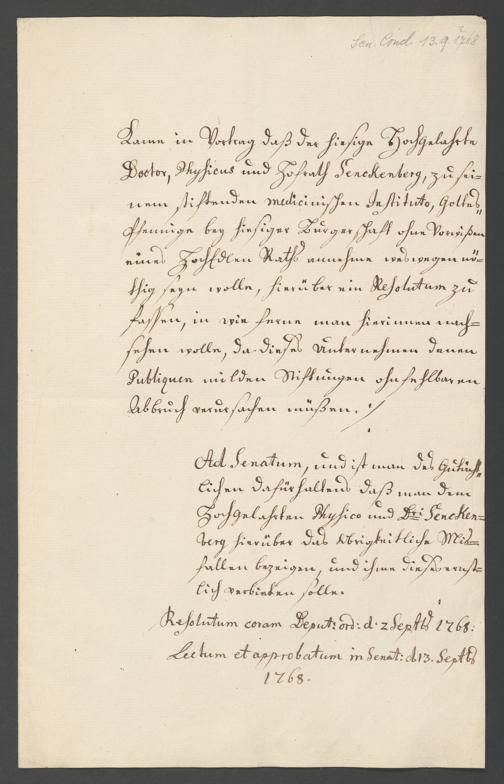 Sen. Concl. 13. 9. 1768
Kame in Vortrag daß der hiesige Hochgelahrte
Doctor, Physicus und Hofrath Senckenberg, zu sei-
nem stiftenden medicinischen Instituto, Gottes-
Pfennige bey hiesiger Burgerschafft ohne Vorwißen
eines HochEdlen Raths annehme weswegen nö-
thig seyn wolle, hierüber ein Resolutum zu
faßen, in wie ferne man hierinnen nach-
sehen wolle, da dieses Unternehmen denen
Publiquen milden Stifftungen ohnfehlbaren
Abbruch verursachen müßen. ./.
Ad Senatum, und ist man des Gutächt-
lichen dafürhaltens daß man dem
Hochgelahrten Physico und Dri Sencken-
berg hierüber das Obrigkeitliche Miß-
fallen bezeigen, und ihme dieses ernst-
lich verbieten solle.
Resolutum coram Deput: ord: d. 2 Septbs 1768.
Lectum et approbatum in Senat: d. 13. Septbs
1768.